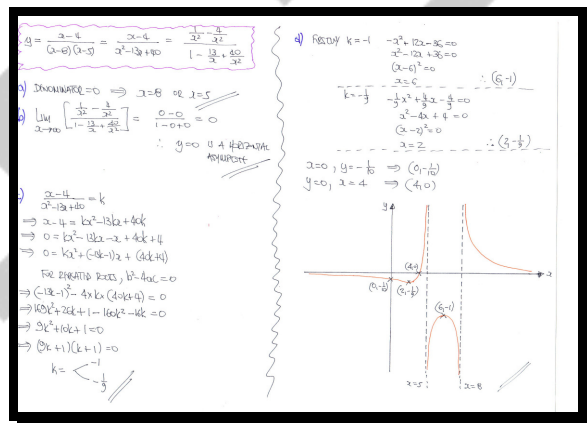 y = \frac{x-4}{(x-8)(x-5)} = \frac{x-4}{x^2-13x+40} = \frac{\frac{1}{x^2} - \frac{4}{x^2}}{1 - \frac{13}{x} + \frac{40}{x^2}}
a) DENOMINATOR = 0 ⇒ x=8 OR x=5
b) LIM x→∞ [\frac{\frac{1}{x^2} - \frac{4}{x^2}}{1 - \frac{13}{x} + \frac{40}{x^2}}] = \frac{0-0}{1-0+0} = 0
∴ y=0 IS A HORIZONTAL
ASYMPTOTE
c) \frac{x-4}{x^2-13x+40} = k
⇒ x-4 = kx^2-13kx+40k
⇒ 0 = kx^2-13kx-x+40k+4
⇒ 0 = kx^2+(-13k-1)x+(40k+4)
FOR REPEATED ROOTS, b^2-4ac=0
⇒ (-13k-1)^2-4×k×(40k+4)=0
⇒ 169k^2+26k+1-160k^2-16k=0
⇒ 9k^2+10k+1=0
⇒ (9k+1)(k+1)=0
k = < -1
-\frac{1}{9}
d) FIRSTLY k=-1 -x^2+12x-36=0
x^2-12x+36=0
(x-6)^2=0
x=6 ∴ (6,-1)
k=-\frac{1}{9} -\frac{1}{9}x^2+\frac{4}{9}x-\frac{4}{9}=0
x^2-4x+4=0
(x-2)^2=0
x=2 ∴ (2,-\frac{1}{9})
x=0, y=-\frac{1}{10} ⇒ (0,-\frac{1}{10})
y=0, x=4 ⇒ (4,0)
y
(4,0)
x
(0,-\frac{1}{10})
(2,-\frac{1}{9})
(6,-1)
x=5
x=8